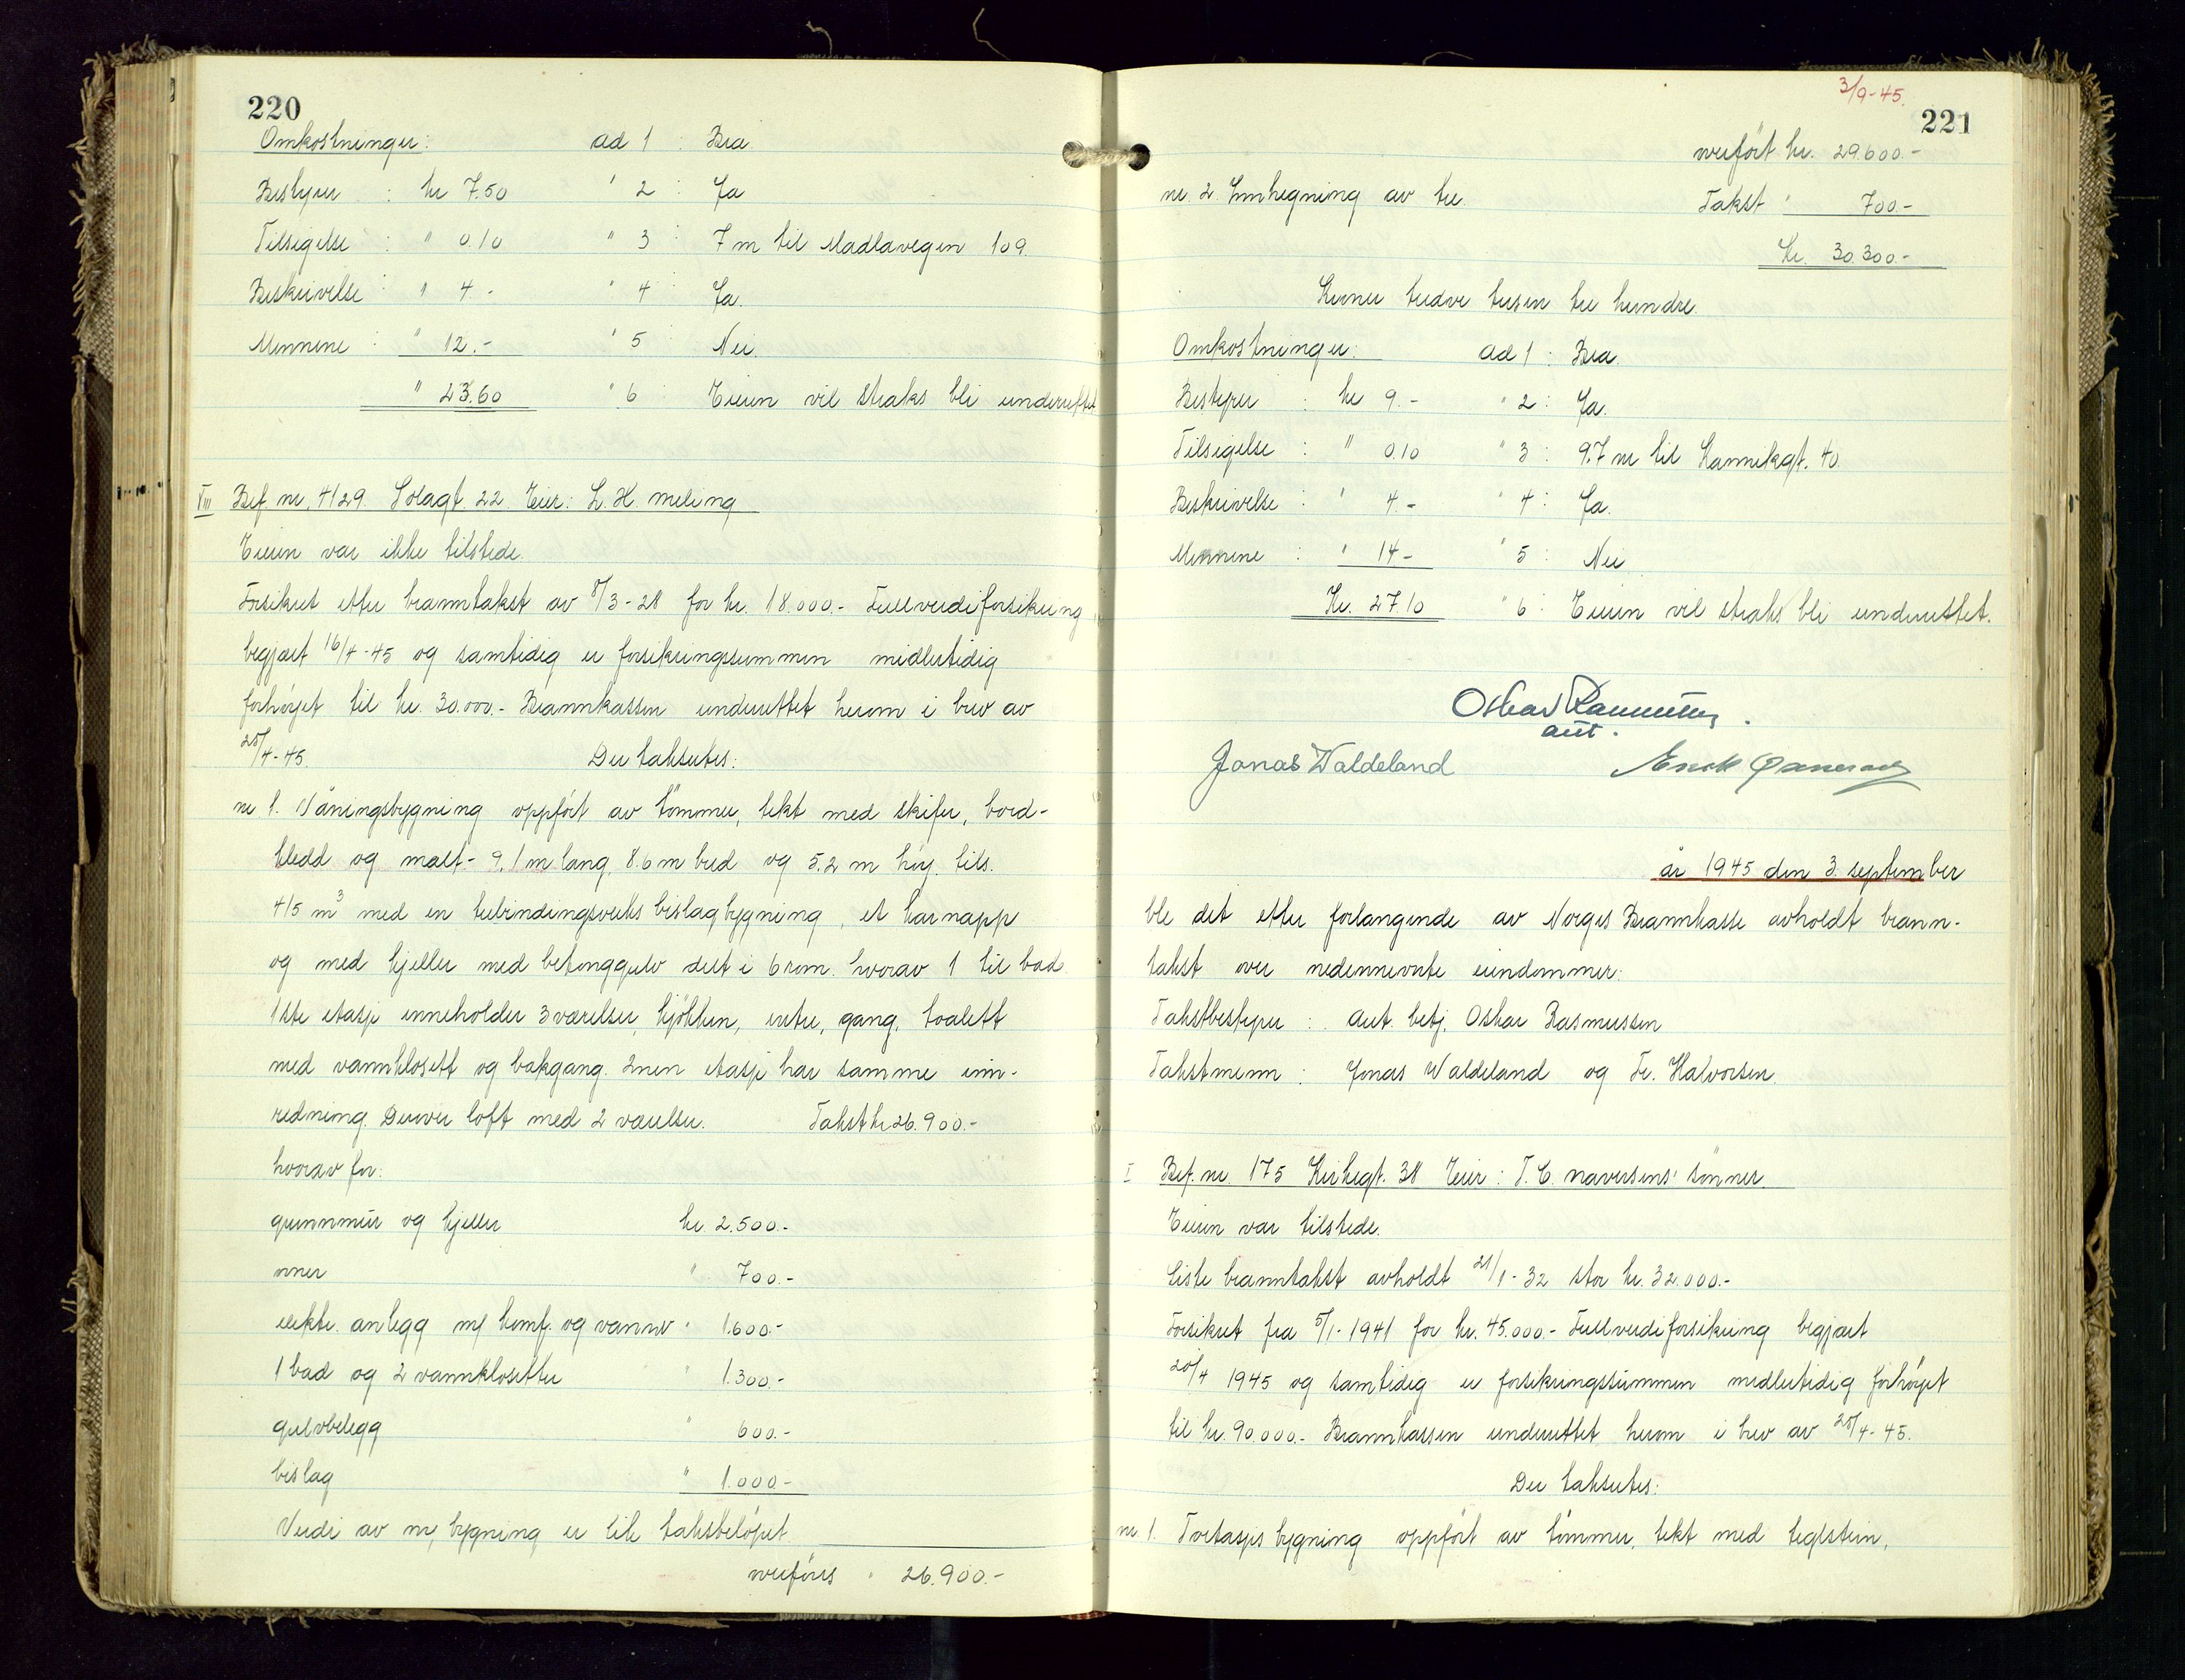 220
Omkostninger: ad 1 : Bra.
Bestyrer : kr 7.50 " 2 : Ja
Tilsigelse : " 0.10 " 3 : 7 m til Madlavegen 109.
Beskrivelse : " 4.- " 4 : Ja.
Mennene : " 12.- " 5 : Nei.
" 23.60 " 6 : Eieren vil straks bli underrettet
VIII Bef. nr. 4129. Solagt. 22. Eier: L. H. Meling
Eieren var ikke tilstede.
Forsikret etter branntakst av 8/3-28 for kr. 18.000.- Fullverdiforsikring
begjært 16/4-45 og samtidig er forsikringssummen midlertidig
forhöyet til kr. 30.000.- Brannkassen underrettet herom i brev av
25/4-45. Der taksertes:
nr 1. Våningsbygning oppfört av tömmer, tekt med skifer, bord-
kledd og malt - 9.1 m lang, 8.6 m bred og 5.2 m höy. tils.
415 m3 med en bislagbygning, et karnapp
og med kjeller med betonggulv delt i 6 rom. hvorav 1 til bad.
1ste etasje inneholder 3 værelser, kjökken, entre, gang, toalett
med vannklosett og bakgang. 2nen etasje har samme inn-
redning. Derover loft med 2 værelser. Takst kr 26.900.-
hvorav for:
grunnmur og kjeller kr. 2.500.-
ovner " 700.-
elektr. anlegg m/ komf. og vannv " 1.600.-
1 bad og 2 vannklosetter " 1.300.-
gulvbelegg " 600.-
bislag " 1.000.-
Verdi av ny bygning er lik takstbelöpet
overföres " 26.900.-
3/9-45.
221
overfört kr. 29.600.-
nr. 2. Innhegning av tre. Takst " 700.-
Kr. 30.300.-
Kroner tredve tusen tre hundre.
Omkostninger: ad 1 : Bra.
Bestyrer : kr 9.- " 2 : Ja.
Tilsigelse : " 0.10 " 3 : 9.7 m til Kannikgt. 40.
Beskrivelse : " 4.- " 4 : Ja.
Mennene : " 14.- " 5 : Nei
Kr. 27.10 " 6 : Eieren vil straks bli underrettet.
Oskar Rasmussen.
aut.
Jonas Waldeland
år 1945 den 3. september
ble det etter forlangende av Norges Brannkasse avholdt brann-
takst over nedennevnte eiendommer:
Takstbestyrer : aut. betj. Oskar Rasmussen
Takstmenn : Jonas Waldeland og Fr. Halvorsen.
I Bef. nr. 175 Kirkegt. 38 Eier: T. C. Naversens' sönner.
Eieren var tilstede.
Siste branntakst avholdt 21/1-32 stor kr. 32.000.-
Forsikret fra 5/1-1941 for kr. 45.000.- Fullverdiforsikring begjært
20/4 1945 og samtidig er forsikringssummen midlertidig forhöyet
til kr. 90.000.- Brannkassen underrettet herom i brev av 25/4-45.
Der taksertes:
nr. 1. Toetasjes bygning oppfört av tömmer, tekt med teglstein,